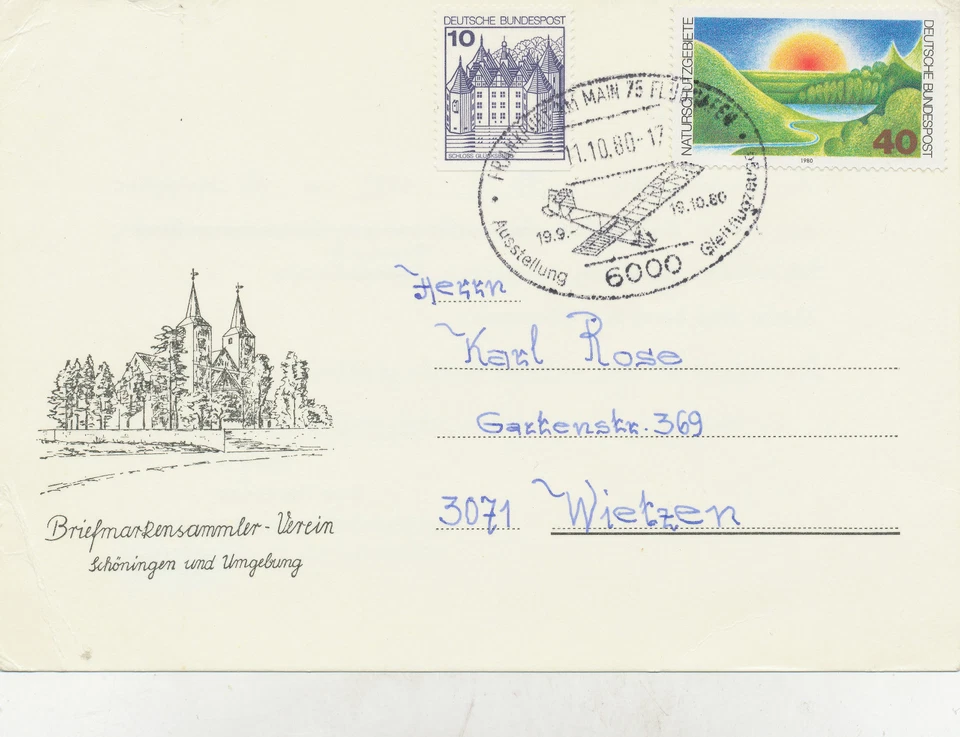 DEUTSCHE BUNDESPOST
10
SCHLOSS GLÜCKSBURG
NATURSCHUTZGEBIETE
DEUTSCHE BUNDESPOST
40
1980
FRANKFURT AM MAIN 75 FLUGHAFEN
11.10.80-17
19.9.-
19.10.80
Ausstellung
Gleitflugzeuge
6000
Herrn
Karl Rose
Gartenstr. 369
3071 Wietzen
Briefmarkensammler-Verein
Schöningen und Umgebung